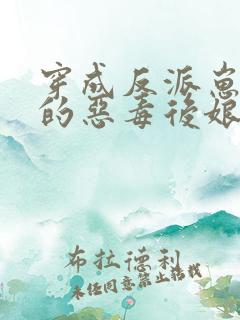 穿成反派崽
的惡毒後娘
布拉德利
未经同意禁止搭载